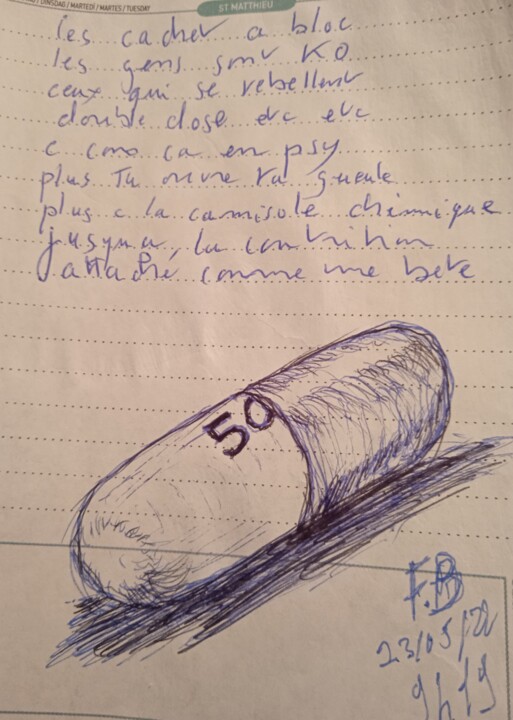 DINSDAG / MARTEDÌ / MARTES / TUESDAY
ST MATTHIEU
les cachet a bloc
les gens sont KO
ceux qui se rebellent
double dose etc etc
c com ça en psy
plus Tu ouvre ta gueule
plus c la camisole chimique
jusqu'a la contrition
attaché comme une bete
50
F.B
23/05/22
9h19